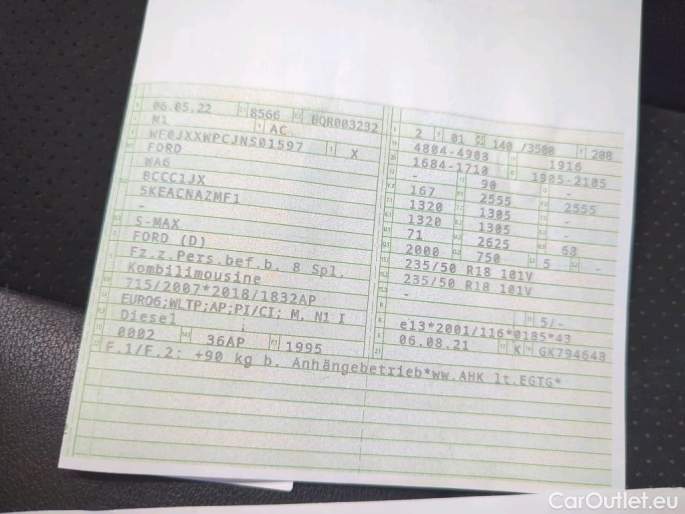 06.05.22 8566 BQR003232
M1 AC
WF0JXXWPCJNS01597 X
FORD
WA6
BCCC1JX
5KEACNAZMF1
-
S-MAX
FORD (D)
Fz.z.Pers.bef.b. 8 Spl.
Kombilimousine
715/2007*2018/1832AP
EURO6;WLTP;AP;PI/CI; M, N1 I
Diesel
0002 36AP 1995
F.1/F.2: +90 kg b. Anhängebetrieb*ww.AHK lt.EGTG*
2 01 140 /3500 208
4804-4903 1916
1684-1710 1985-2105
- 90 -
167 2555 2555
1320 1305 -
1320 1305 -
71 2625 63
2000 750 5 -
235/50 R18 101V
235/50 R18 101V
-
5/-
e13*2001/116*0185*43
06.08.21 K GK794648
CarOutlet.eu